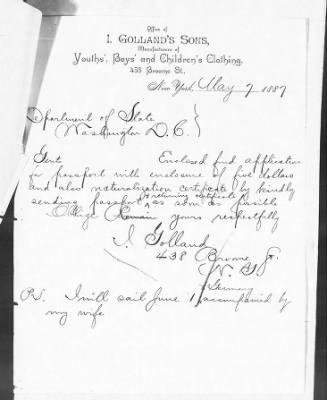 Office of
I. GOLLAND'S SONS,
Manufacturer of
Youths', Boys' and Children's Clothing,
438 Broome St.,
New York, May 7 1887
Department of State
Washington D.C.
Gent Enclosed find application
for passport with enclosure of five dollars
and also naturalization certificate by kindly
sending passport & returning certificate as soon as possible
Oblige Remain yours respectfully
I Golland
438 Broome St.
N. Y.
Germany
P.S. I will sail June 1 accompanied by
my wife